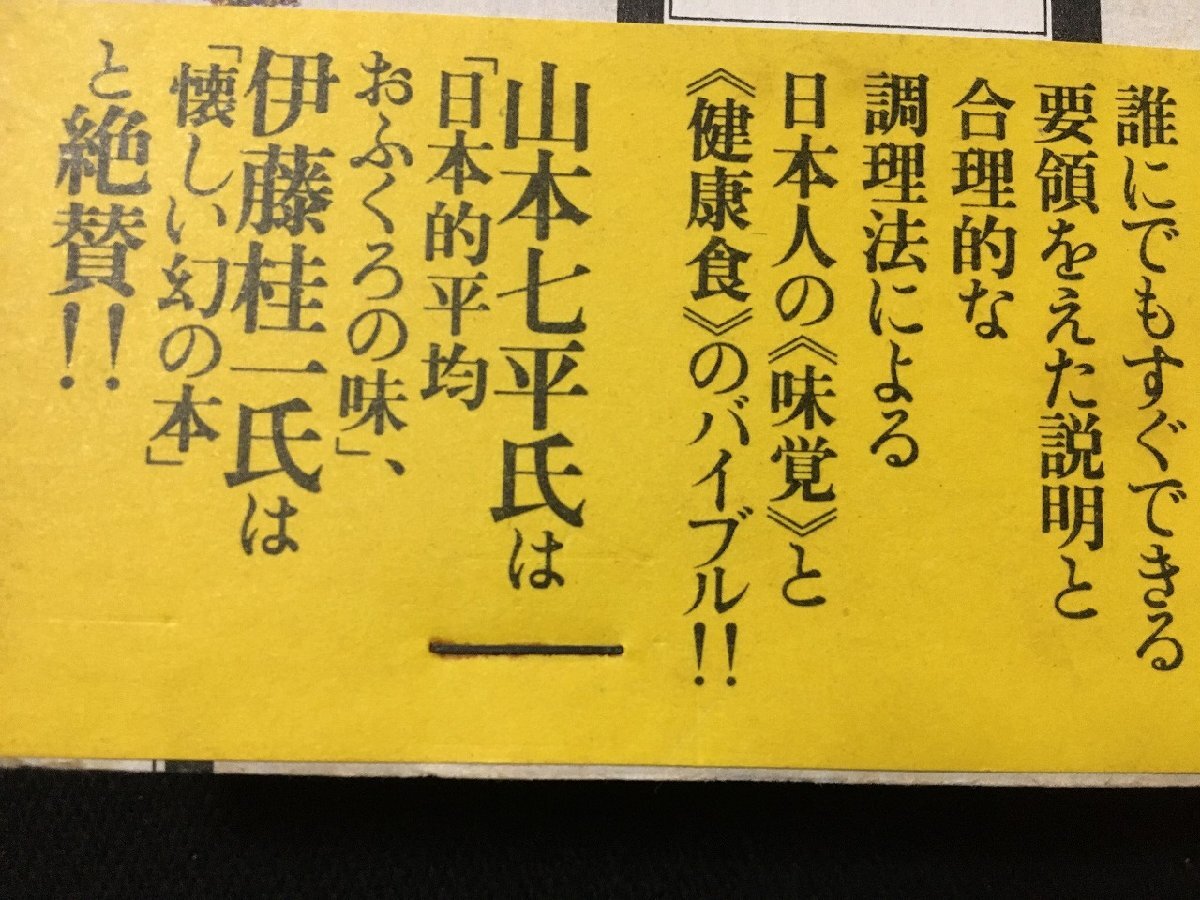 誰にでもすぐできる
要領をえた説明と
合理的な
調理法による
日本人の《味覚》と
《健康食》のバイブル!!
山本七平氏は
「日本的平均
おふくろの味」、
伊藤桂一氏は
「懐しい幻の本」
と絶賛!!